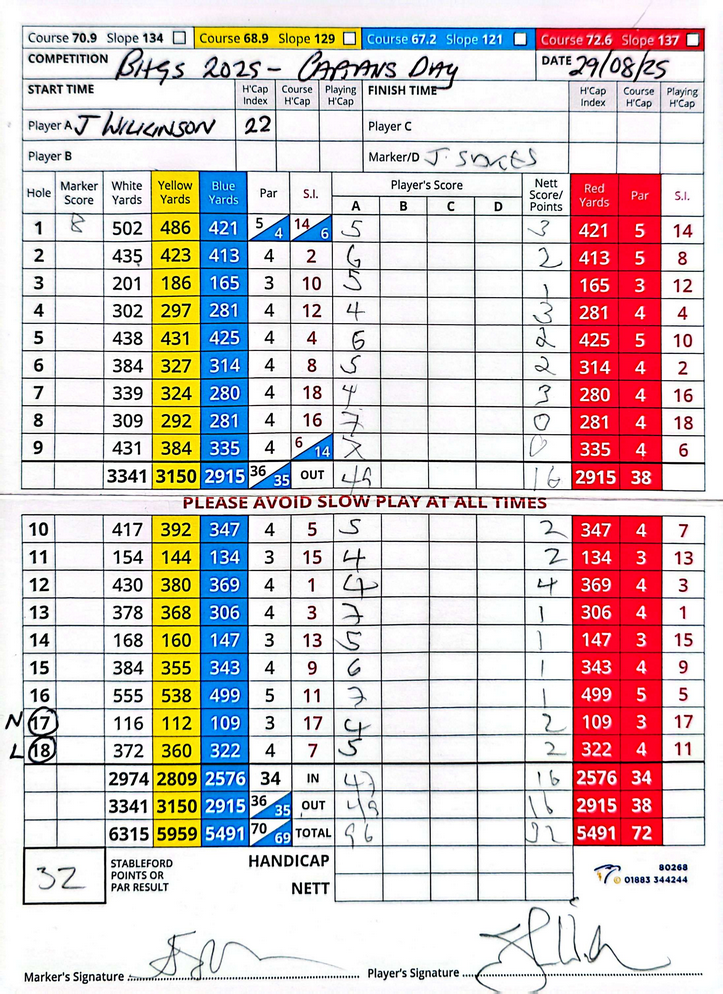 Course 70.9 Slope 134 Course 68.9 Slope 129 Course 67.2 Slope 121 Course 72.6 Slope 137
COMPETITION BHGS 2025 - CAPTANS DAY DATE 29/08/25
START TIME H'Cap Index Course H'Cap Playing H'Cap FINISH TIME H'Cap Index Course H'Cap Playing H'Cap
Player A J WILKINSON 22 Player C
Player B Marker/D J. STOKES
Hole Marker Score White Yards Yellow Yards Blue Yards Par S.I. Player's Score A B C D Nett Score/Points Red Yards Par S.I.
1 8 502 486 421 5 4 14 6 5 3 421 5 14
2 435 423 413 4 2 6 2 413 5 8
3 201 186 165 3 10 5 1 165 3 12
4 302 297 281 4 12 4 3 281 4 4
5 438 431 425 4 4 6 2 425 5 10
6 384 327 314 4 8 5 2 314 4 2
7 339 324 280 4 18 4 3 280 4 16
8 309 292 281 4 16 7 0 281 4 18
9 431 384 335 4 6 14 0 335 4 6
3341 3150 2915 36 35 OUT 49 16 2915 38
PLEASE AVOID SLOW PLAY AT ALL TIMES
10 417 392 347 4 5 5 2 347 4 7
11 154 144 134 3 15 4 2 134 3 13
12 430 380 369 4 1 4 4 369 4 3
13 378 368 306 4 3 7 1 306 4 1
14 168 160 147 3 13 5 1 147 3 15
15 384 355 343 4 9 6 1 343 4 9
16 555 538 499 5 11 7 1 499 5 5
N 17 116 112 109 3 17 4 2 109 3 17
L 18 372 360 322 4 7 5 2 322 4 11
2974 2809 2576 34 IN 47 16 2576 34
3341 3150 2915 36 35 OUT 49 16 2915 38
6315 5959 5491 70 69 TOTAL 96 32 5491 72
32 STABLEFORD POINTS OR PAR RESULT HANDICAP NETT 80268 © 01883 344244
Marker's Signature Player's Signature